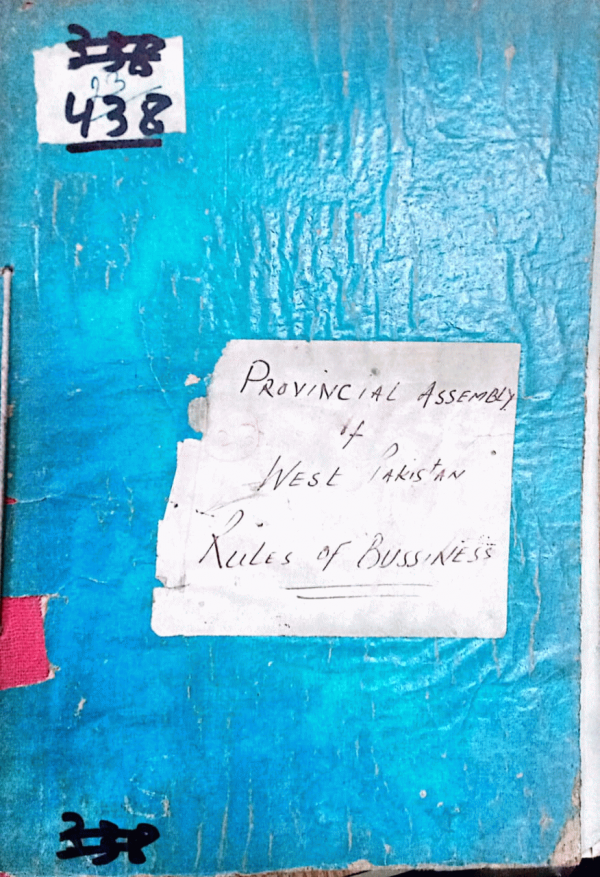 338
23
438
PROVINCIAL ASSEMBLY
of
WEST PAKISTAN
RULES OF BUSSINESS
338